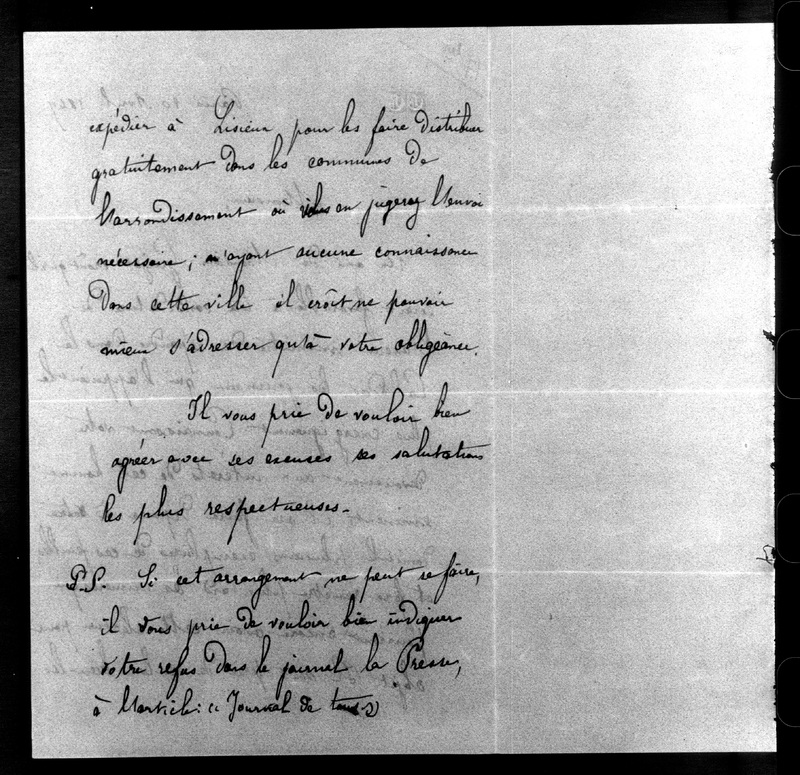 expédier à Lisieux pour les faire distribuer
gratuitement dans les communes de
l'arrondissement où vous en jugerez l'envoi
nécessaire ; n'ayant aucune connaissance
Dans cette ville il croit ne pouvoir
mieux s'adresser qu'à votre obligeance.
Il vous prie de vouloir bien
agréer avec ses excuses ses salutations
les plus respectueuses.
P.S. Si cet arrangement ne peut se faire,
il vous prie de vouloir bien indiquer
votre refus dans le journal la Presse,
à l'article : « Journal de tous »